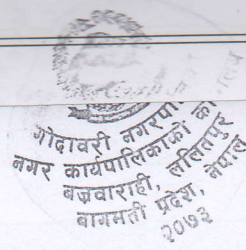 गोदावरी नगरपा
नगर कार्यपालिकाको का
बज्रवाराही, ललितपुर
बागमती प्रदेश, नेपाल
२०७३